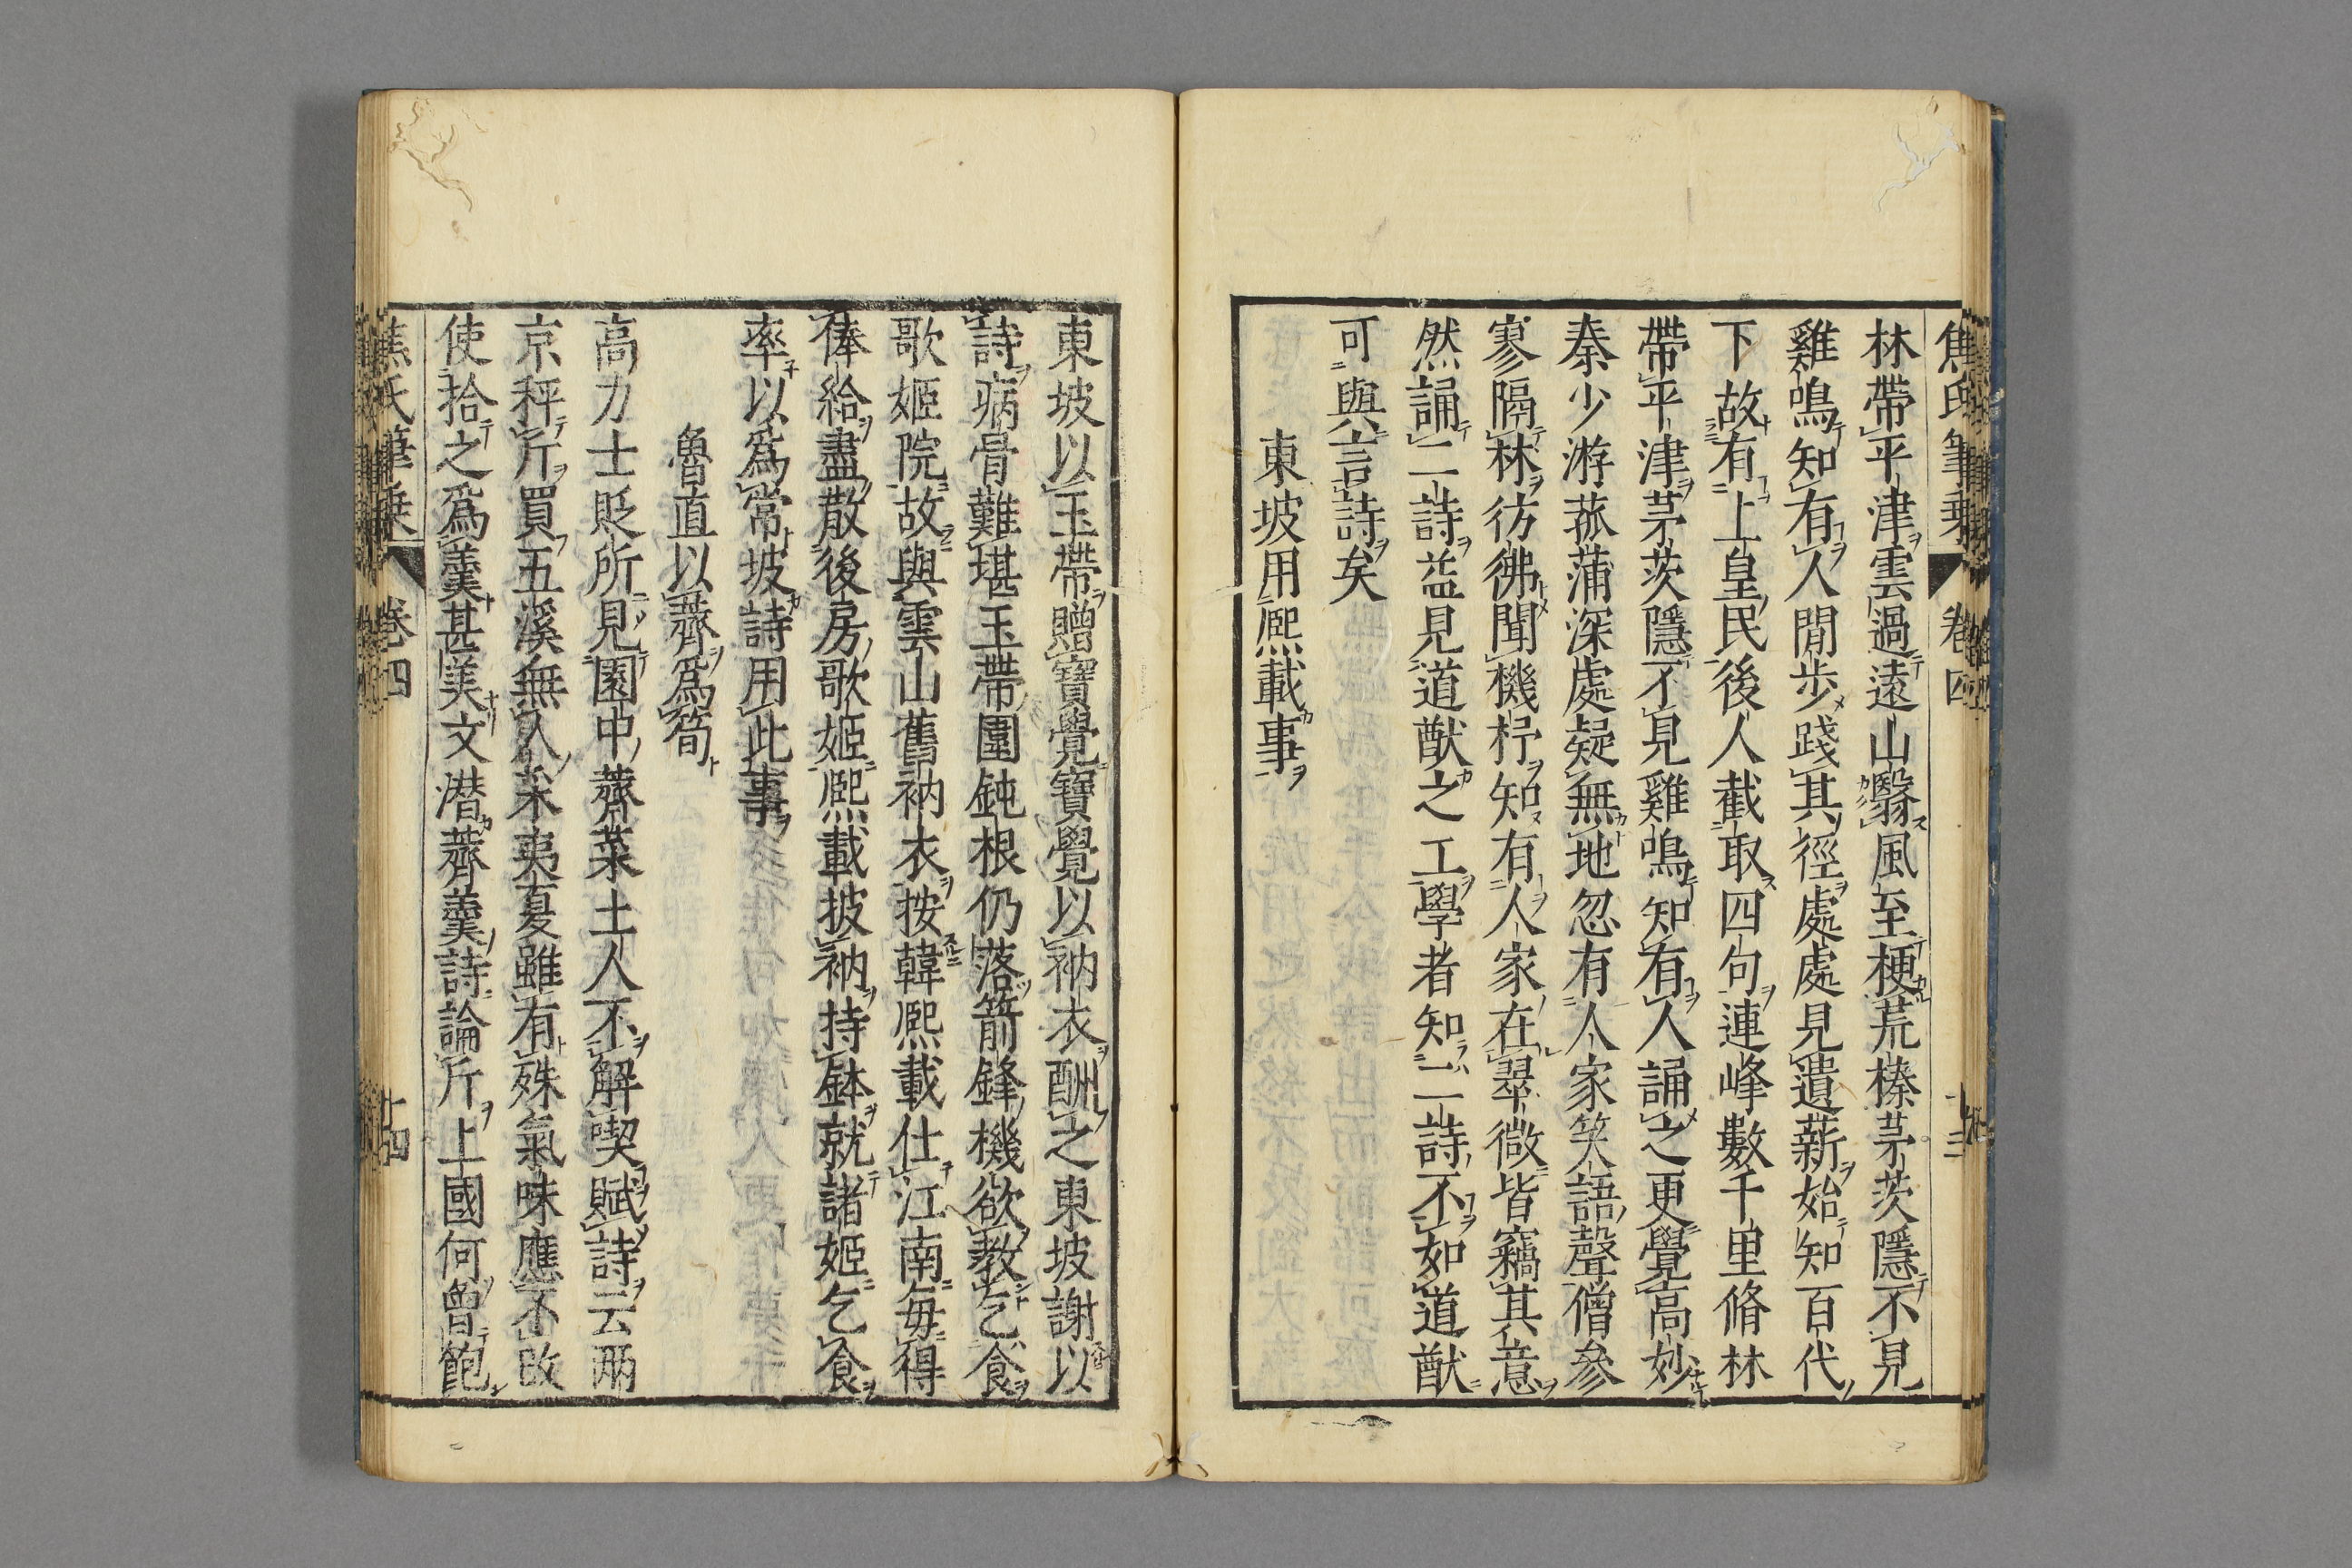 焦氏筆乗 卷四 十三
林帶平津雲過遠山翳風至梗荒榛茅茨隱不見
雞鳴知有人閒步踐其徑處處見遺薪始知百代
下故有上皇民後人截取四句連峰數千里脩林
帶平津茅茨隱不見雞鳴知有人誦之更覺高妙
秦少游菰蒲深處疑無地忽有人家笑語聲僧參
寥隔林彷彿聞機杼知有人家在翠微皆竊其意
然誦二詩益見道猷之工學者知二詩不如道猷
可與言詩矣
東坡用熙載事
東坡以玉帶贈寶覺寶覺以衲衣酬之東坡謝以
詩病骨難堪玉帶圍鈍根仍落箭鋒機欲教乞食
歌姬院故與雲山舊衲衣按韓熙載仕江南每得
俸給盡散後房歌姬熙載披衲持鉢就諸姬乞食
率以爲常坡詩用此事
魯直以薺爲筍
高力士貶所見園中薺菜土人不解喫賦詩云兩
京秤斤買五溪無人采夷夏雖有殊氣味應不改
使拾之爲羹甚美文潛薺羹詩論斤上國何曾飽
焦氏筆乗 卷四 十四